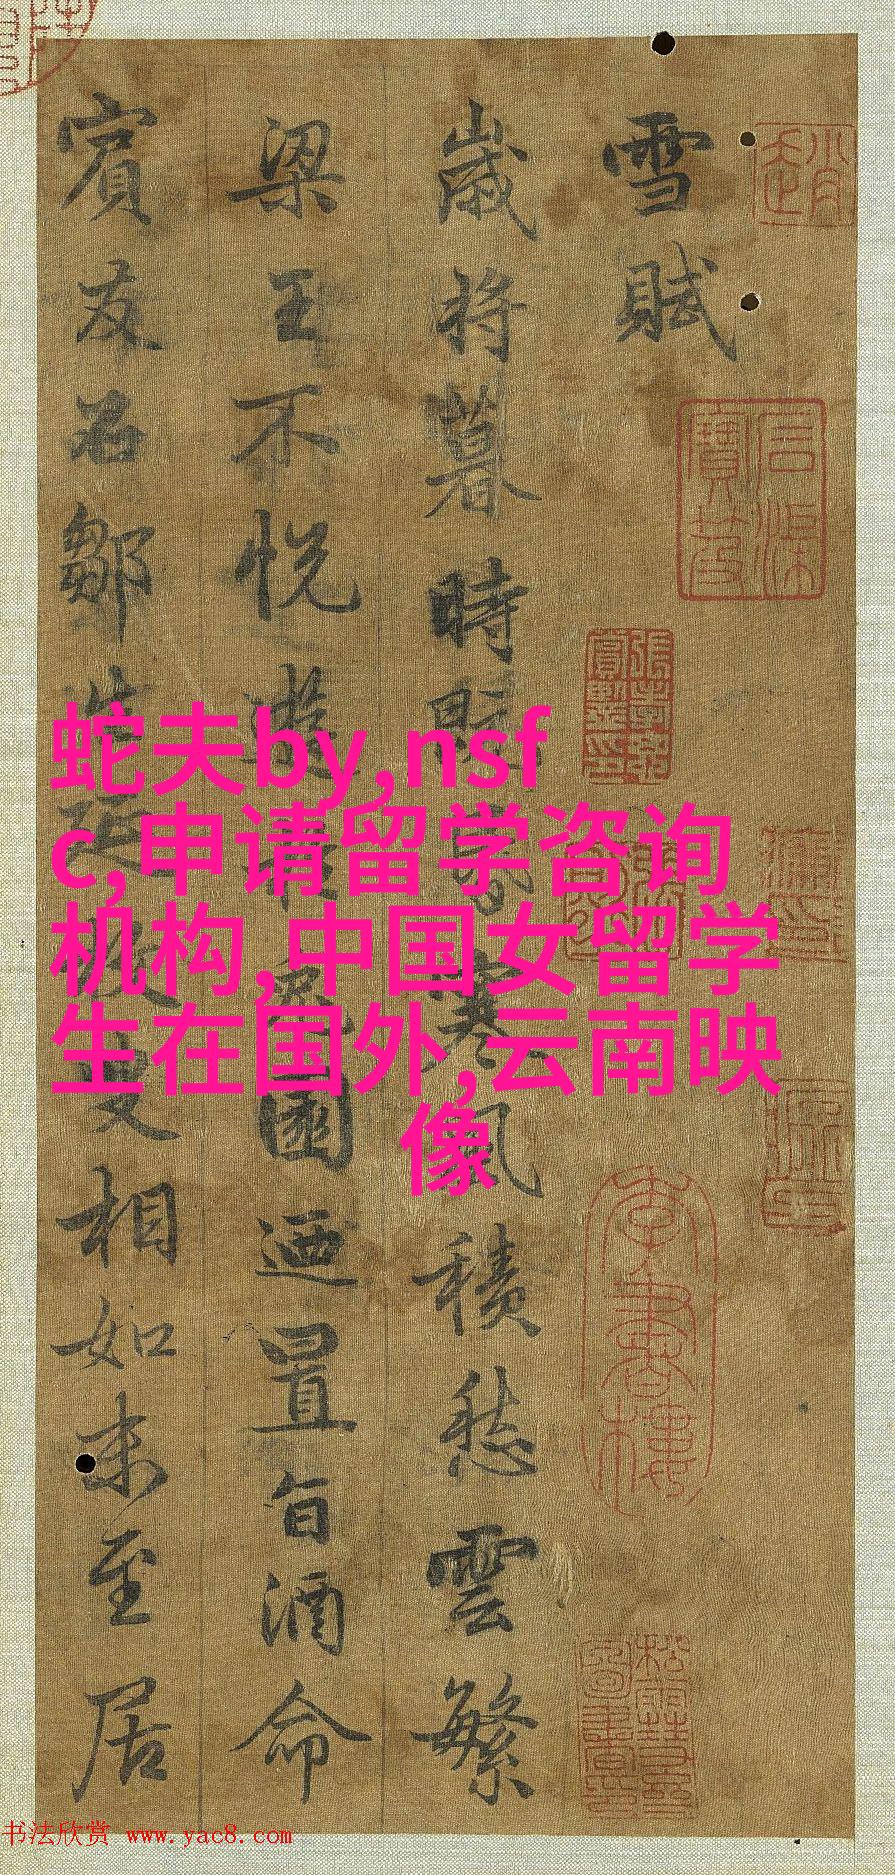 雪賦
歲將暮時既昏寒風積愁雲繁
梁王不悅遊於兔園迺置旨酒命
賓友召鄒生延枚叟相如末至居
蛇夫by,nsf
c,申请留学咨询
机构,中国女留学
生在国外,云南映
像
书法欣赏 www.yac8.com